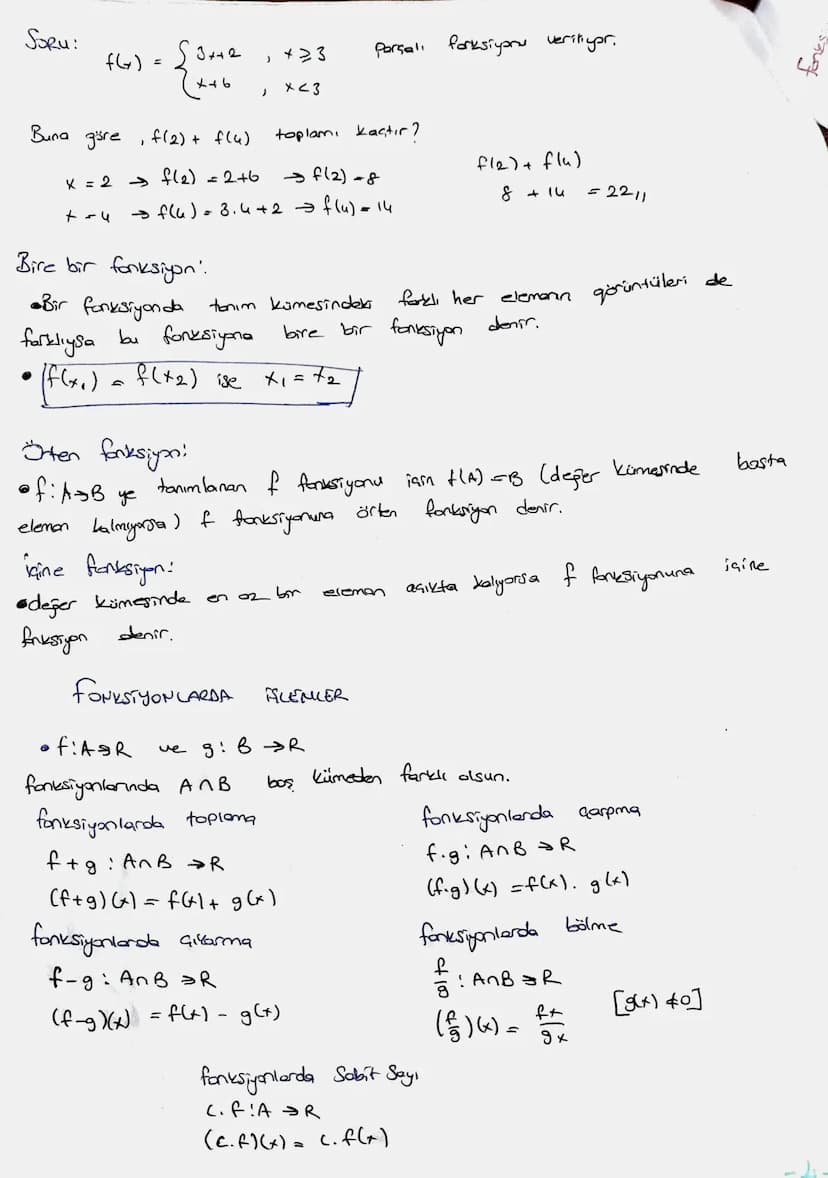 SORU:
f(x) = { 3x+2 , x ≥ 3 parçalı fonksiyonu veriliyor.
x+6 , x < 3
Buna göre , f(2) + f(4) toplamı kaçtır?
x = 2 → f(2) = 2+6 → f(2) = 8
x = 4 → f(4) = 3.4+2 → f(4) = 14
f(2) + f(4)
8 + 14 = 22,,
Bire bir fonksiyon:
• Bir fonksiyonda tanım kümesindeki farklı her elemanın görüntüleri de
farklıysa bu fonksiyona bire bir fonksiyon denir.
• f(x₁) = f(x₂) ise x₁ = x₂
Örten fonksiyon:
• f: A→B ye tanımlanan f fonksiyonu için f(A) = B (değer kümesinde boşta
eleman kalmıyorsa) f fonksiyonuna örten fonksiyon denir.
içine fonksiyon:
• değer kümesinde en az bir eleman açıkta kalıyorsa f fonksiyonuna içine
fonksiyon denir.
FONKSİYONLARDA İŞLEMLER
• f: A→R ve g: B→R
fonksiyonlarında A∩B boş kümeden farklı olsun.
fonksiyonlarda toplama
f+g : A∩B → R
(f+g)(x) = f(x) + g(x)
fonksiyonlarda çarpma
f.g : A∩B → R
(f.g)(x) = f(x). g(x)
fonksiyonlarda çıkarma
f-g : A∩B → R
(f-g)(x) = f(x) - g(x)
fonksiyonlarda bölme
f/g : A∩B → R
(f/g)(x) = fx/gx [g(x) ≠ 0]
fonksiyonlarda Sabit Sayı
c.f : A → R
(c.f)(x) = c.f(x)